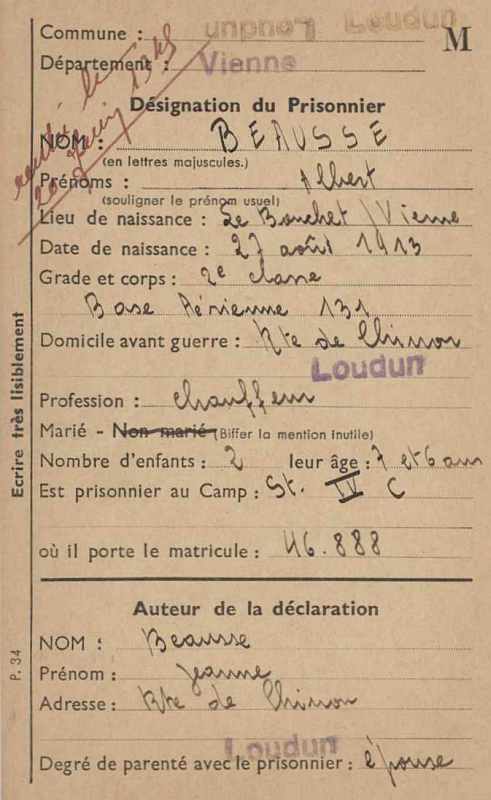 Commune : Loudun Loudun
M
Département : Vienne
rentré le
20 Juin 1945
Désignation du Prisonnier
NOM : BEAUSSE
(en lettres majuscules.)
Prénoms : Albert
(souligner le prénom usuel)
Lieu de naissance : Le Bouchet / Vienne
Date de naissance : 27 août 1913
Grade et corps : 2e classe
Base Aérienne 131
Domicile avant guerre : Rte de Chinon
Loudun
Profession : chauffeur
Marié - Non marié (Biffer la mention inutile)
Nombre d'enfants : 2 leur âge : 7 et 6 ans
Est prisonnier au Camp : St. IV C
où il porte le matricule : 46.888
Ecrire très lisiblement
Auteur de la déclaration
NOM : Beausse
Prénom : Jeanne
Adresse : Rte de Chinon
Loudun
Degré de parenté avec le prisonnier : épouse
P. 34